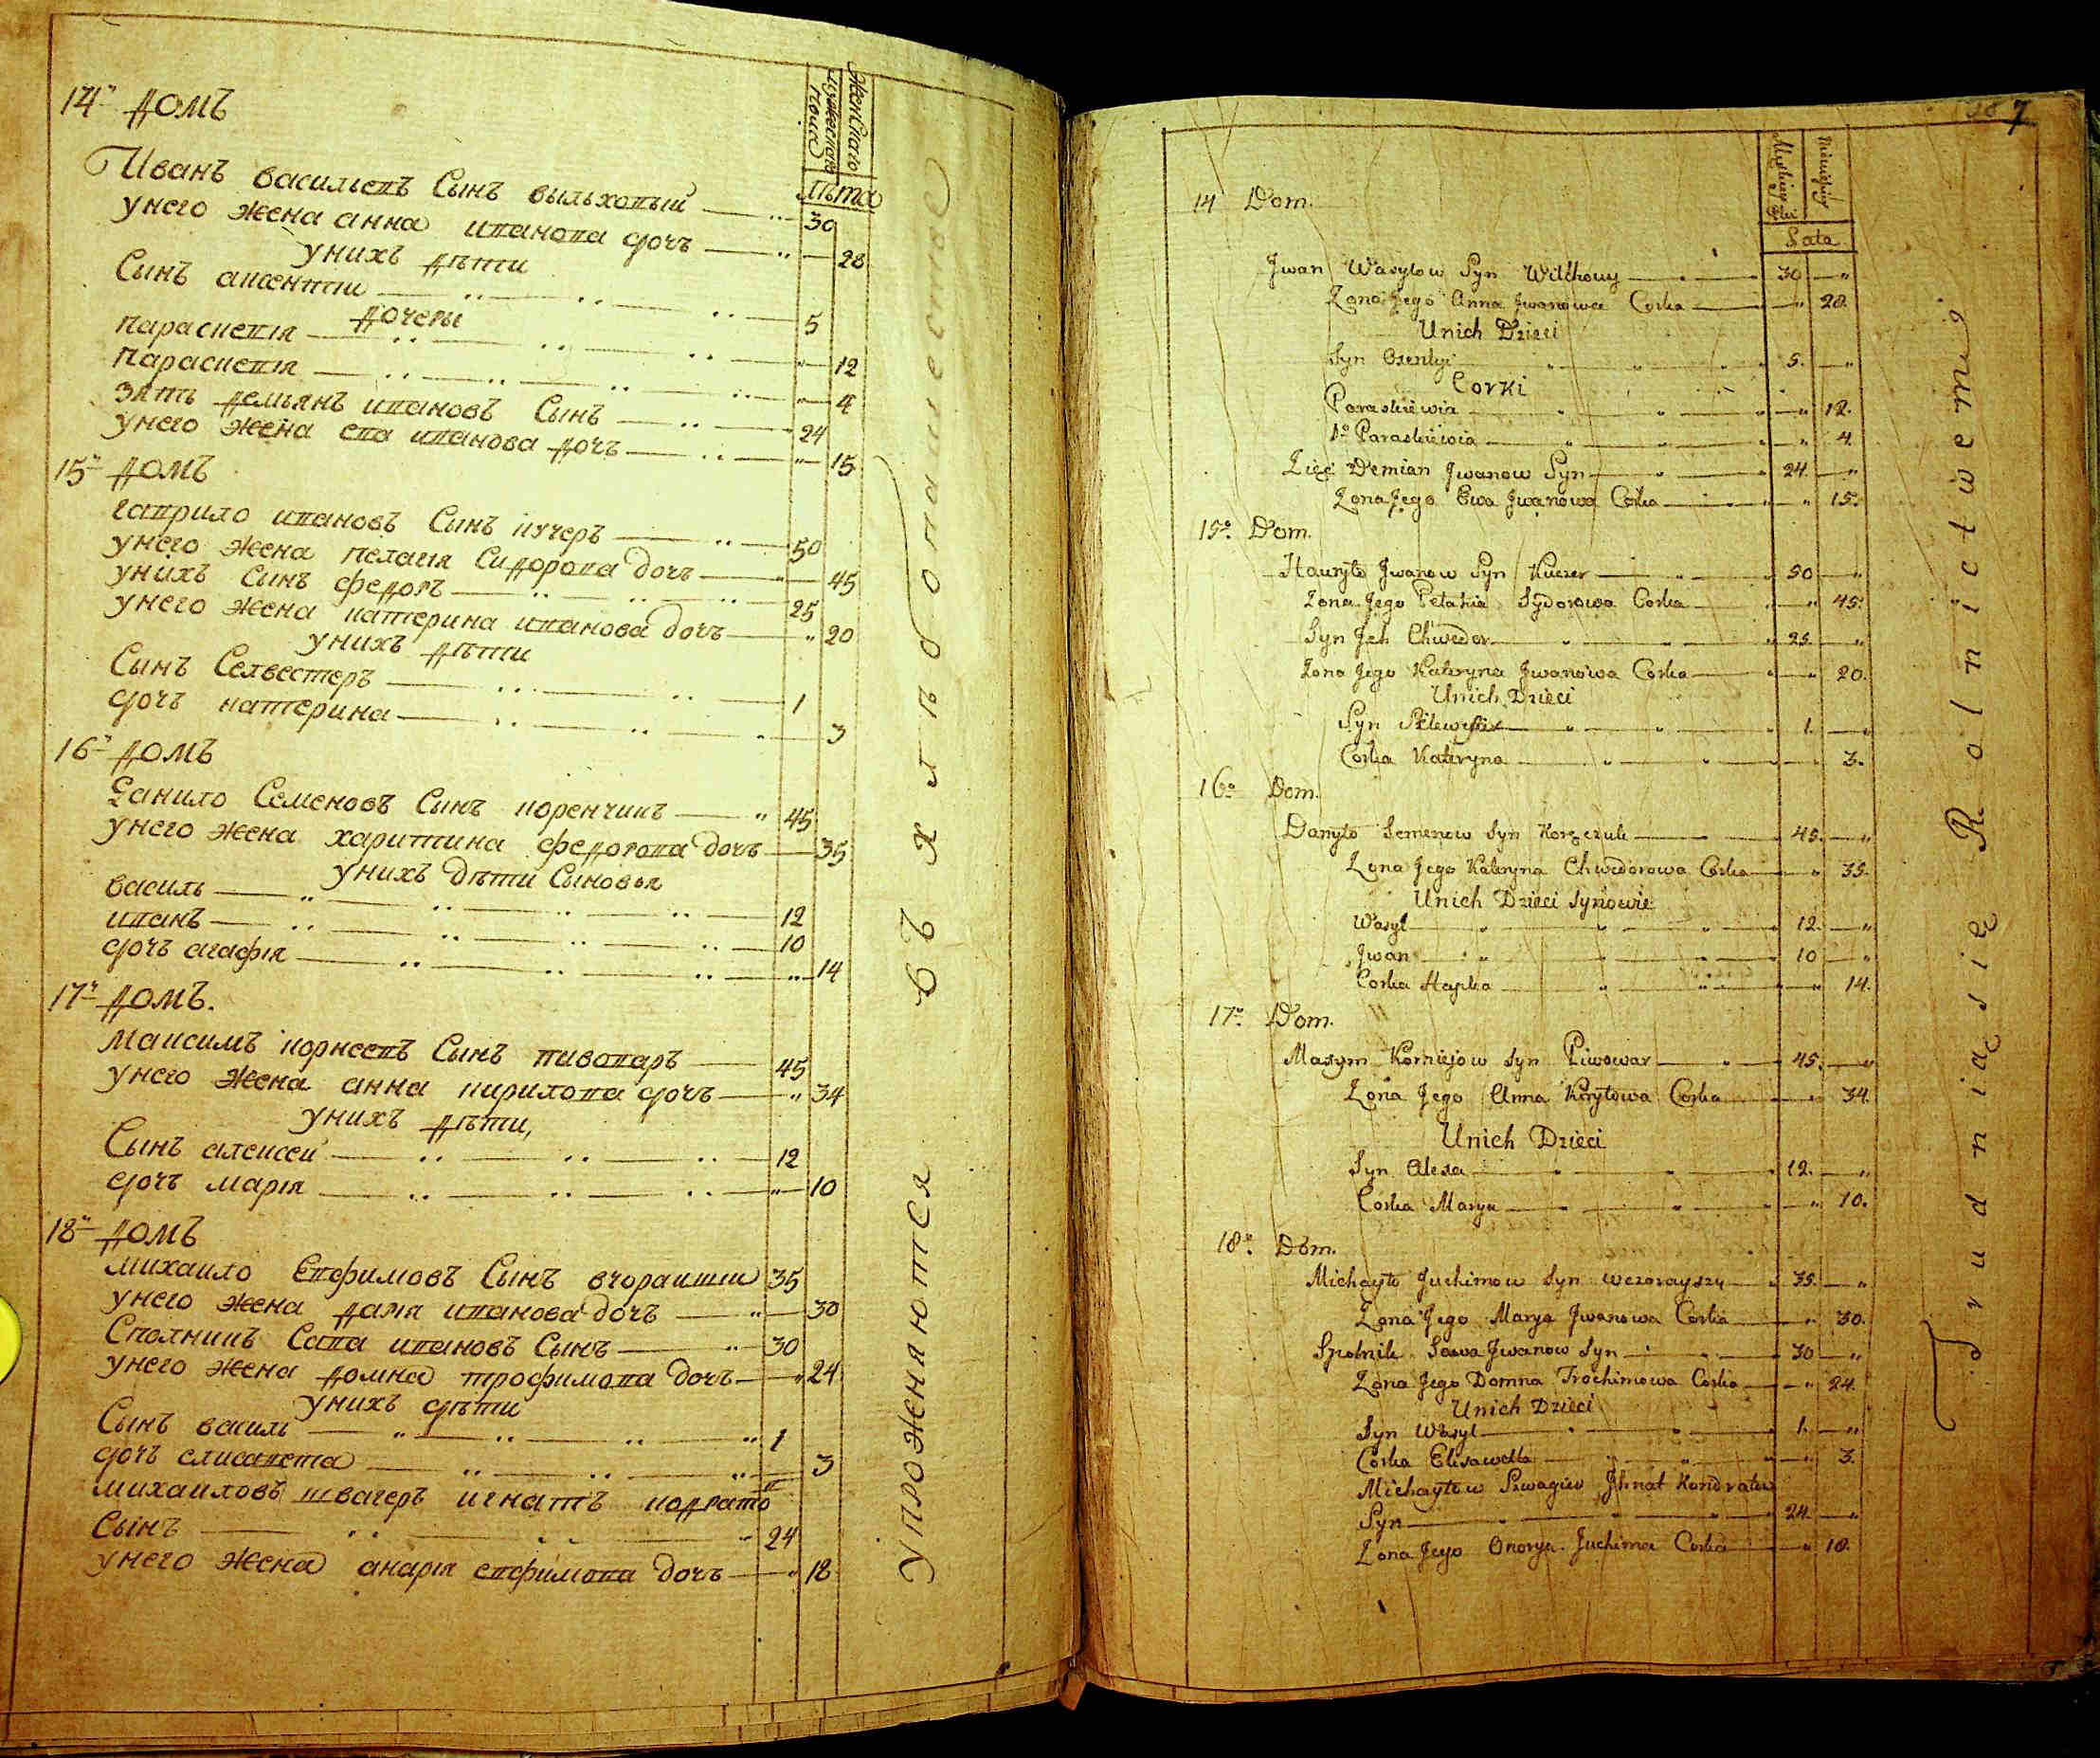 14ъ домъ
женскаго
мужеска
пола
лѣта
Иванъ васильевъ Сынъ вильховый 30
унего жена анна иванова дочъ 28
унихъ дѣти
Сынъ авксентии 5
дочеры
параскевія 12
параскевія 4
зять демьянъ ивановъ Сынъ 24
унего жена ева иванова дочъ 15
15ъ домъ
гаврило ивановъ Сынъ кучеръ 50
унего жена пелагія Сидорова дочъ 45
унихъ Синъ федоръ 25
унего жена катерина иванова дочъ 20
унихъ дѣти
Сынъ Селвестеръ 1
дочъ катерина 3
16ъ домъ
Данило Семеновъ Сынъ коренчикъ 45
унего жена харитина федорова дочъ 35
унихъ дѣти Сыновья
василь 12
иванъ 10
дочъ агафія 14
17ъ домъ.
Максимъ корнеевъ Сынъ пивоваръ 45
унего жена анна кирилова дочъ 34
унихъ дѣти,
Сынъ алексеи 12
дочъ марія 10
18ъ домъ
михаило Евфимовъ Сынъ вчораишии 35
унего жена дарія иванова дочъ 30
Сполникъ Сава ивановъ Сынъ 30
унего жена домна трофимова дочъ 24
унихъ дѣти
Сынъ василь 1
дочъ елисавета 3
михаиловъ швагеръ игнатъ кодрато
въ
Сынъ 24
унего жена анарія евфимова дочъ 18
упрожнаются въ хлѣбопашествѣ
7
Męskiey
Płci
Niewieściey
Lata
14 Dom.
Jwan Wasylow Syn Wilchowy 30
Zona Jego Anna Jwanowa Corka 28.
Unich Dzieci
Syn Oxentyi 5.
Corki
Paraskiewia 12.
1o Paraskiewia 4.
Zięć Demian Jwanow Syn 24
Zona Jego Ewa Jwanowa Corka 15.
15o. Dom.
Hauryło Jwanow Syn Kuczer 50
Zona Jego Pełahia Sydorowa Corka 45.
Syn Jeh Chwedor 25.
Zona Jego Kateryna Jwanowa Corka 20.
Unich Dzieci
Syn Silewester 1.
Corka Kateryna 3.
16o Dom.
Danyło Semenow Syn Korzczuk 45.
Zona Jego Kateryna Chwedorowa Corka 35.
Unich Dzieci Synowie
Wasyl 12.
Jwan 10
Corka Hapka 14.
17o. Dom.
Maxym Korniejow Syn Piwowar 45.
Zona Jego Anna Kiryłowa Corka 34.
Unich Dzieci
Syn Alexa 12.
Corka Marya 10.
18o. Dom.
Michayło Juchimow Syn Wczorayszy 35.
Zona Jego Marya Jwanowa Corka 30.
Szpolnik Sawa Jwanow Syn 30
Zona Jego Domna Trochimowa Corka 24.
Unich Dzieci
Syn Wasyl 1.
Corka Elisawetta 3.
Michayłow Szwagier Jhnat Kondratow
Syn 24
Zona Jego Onorya Juchima Corka 18.
Trudnią się Rolnictwem